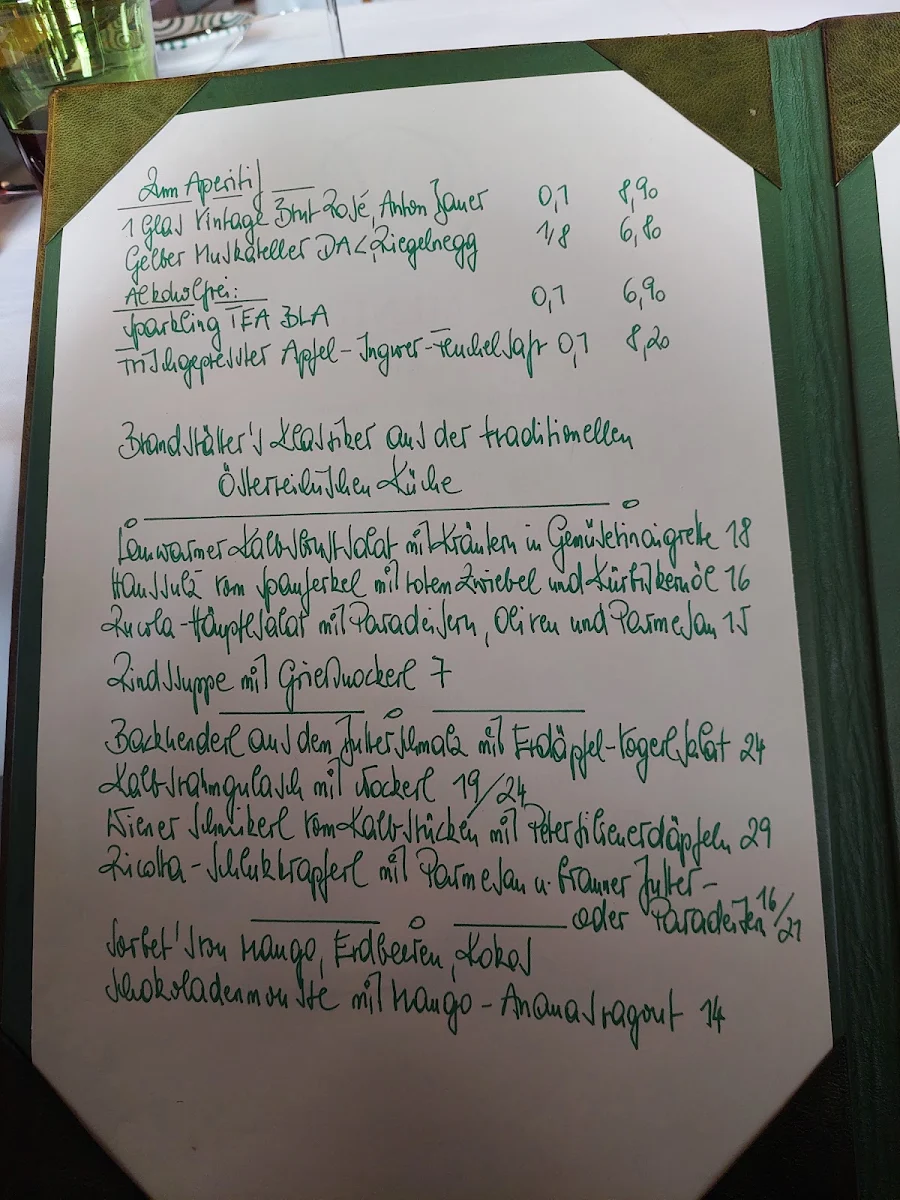 Zum Aperitif
1 Glas Vintage Brut Rosé, Anton Bauer 0,1 8,90
Gelber Muskateller DAC, Riegelnegg 1/8 6,80
Alkoholfrei:
Sparkling TEA BLA 0,1 6,90
Frischgepresster Apfel-Ingwer-Fenchelsaft 0,1 8,20
Brandstätter's Klassiker aus der traditionellen
Österreichischen Küche
Lauwarmer Kalbsbrustsalat mit Kräutern in Gemüsevinaigrette 18
Haussulz vom Spanferkel mit rotem Zwiebel und Kürbiskernöl 16
Rucola-Häuptelsalat mit Paradeisern, Oliven und Parmesan 15
Rindssuppe mit Grießnockerl 7
Backhenderl aus dem Butterschmalz mit Erdäpfel-Vogerlsalat 24
Kalbsrahmgulasch mit Nockerl 19/24
Wiener Schnitzerl vom Kalbsrücken mit Petersilienerdäpfeln 29
Ricotta-Schlutzkrapferl mit Parmesan u. brauner Butter-
oder Paradeisen 16/21
Sorbet's von Mango, Erdbeeren, Kokos
Schokoladenmousse mit Mango-Ananasragout 14